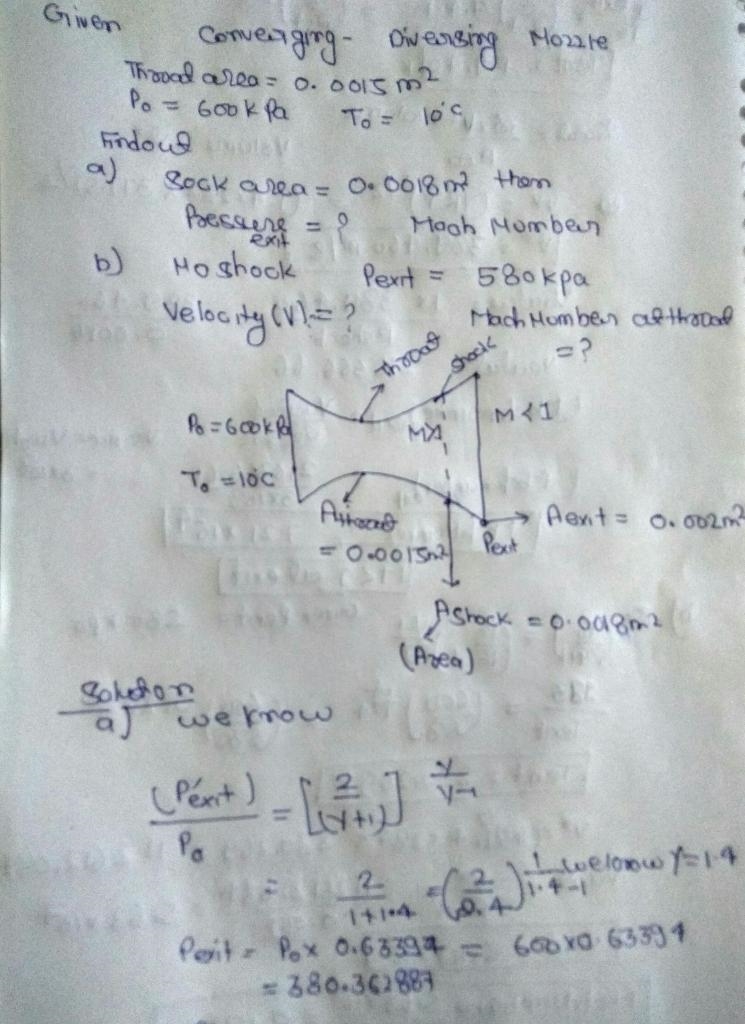 Given
Converging - Diverging Nozzle
Throat area = 0.0015 m²
P₀ = 600 k Pa T₀ = 10°C
Findout
a) Sock area = 0.0018 m² then
Pressure exit = ? Mach Number
b) No shock Pexit = 580kpa
Velocity (V) = ? Mach Number at throat
= ?
Throat shock
P₀ = 600 kPa M>1 M<1
T₀ = 10°C
Athroat Aexit = 0.002m²
= 0.0015m² Pexit
Ashock = 0.0018m²
(Area)
Solution
a) we know
(P'exit) / P₀ = [2 / (γ+1)] γ/γ-1
= 2 / 1+1.4 = (2 / 0.4) 1 / 1.4-1 we know γ=1.4
Pexit = P₀ x 0.63394 = 600 x 0.63394
= 380.362887